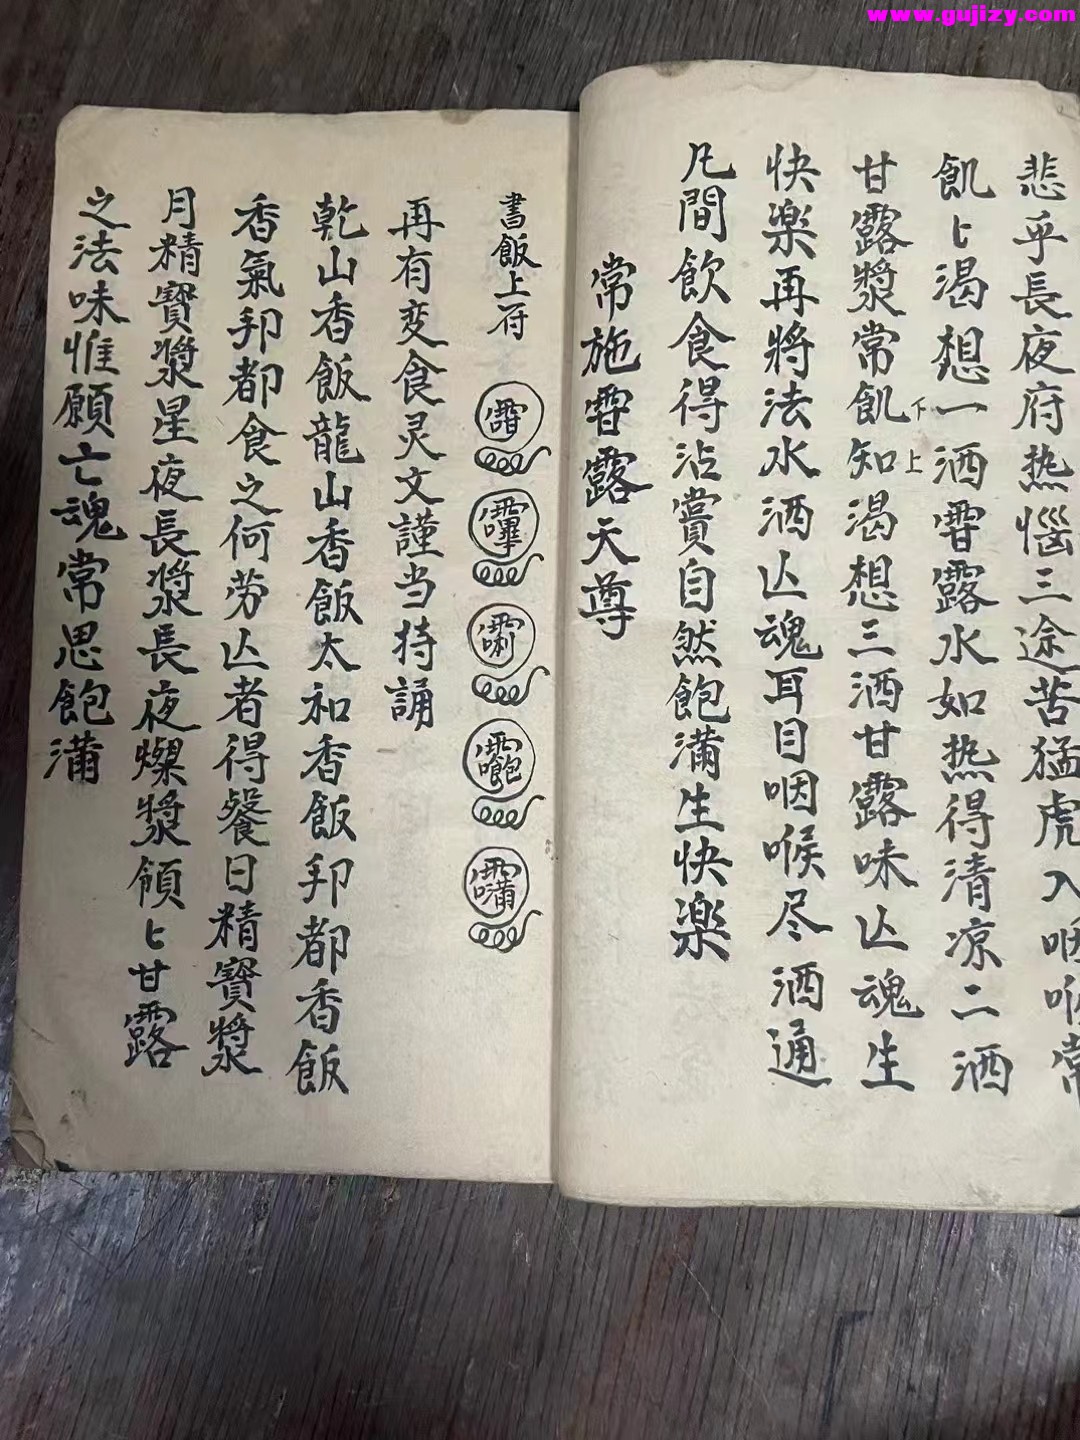 www.gujizy.com
悲乎長夜府热惱三途苦猛虎入咽喉常
飢〻渴想一洒䨒露水如热得清凉二洒
甘露漿常飢知渴想三洒甘露味亾魂生
下
上
快樂再將法水洒亾魂耳目咽喉尽洒通
凡間飲食得沾賞自然飽满生快楽
常施䨒露天尊
書飯上符
再有变食灵文謹当持誦
乾山香飯龍山香飯太和香飯邦都香飯
香氣邦都食之何劳亾者得餐日精寶漿
月精寶漿星夜長漿長夜燦漿領〻甘露
之法味惟願亡魂常思飽满